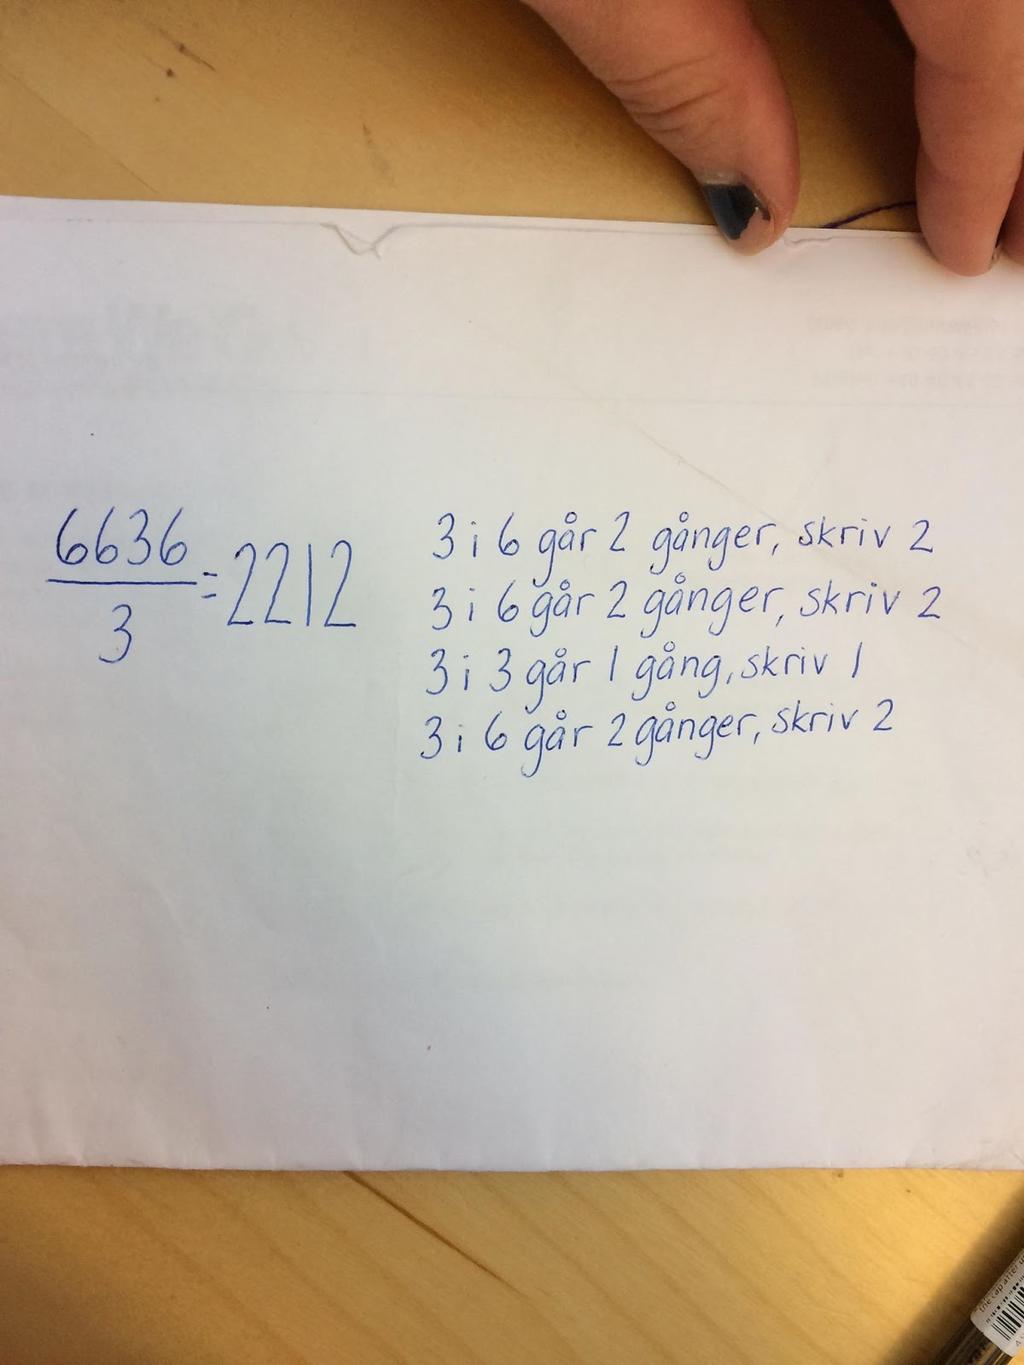 6636
3
=2212
3 i 6 går 2 gånger, skriv 2
3 i 6 går 2 gånger, skriv 2
3 i 3 går 1 gång, skriv 1
3 i 6 går 2 gånger, skriv 2
the cap after u